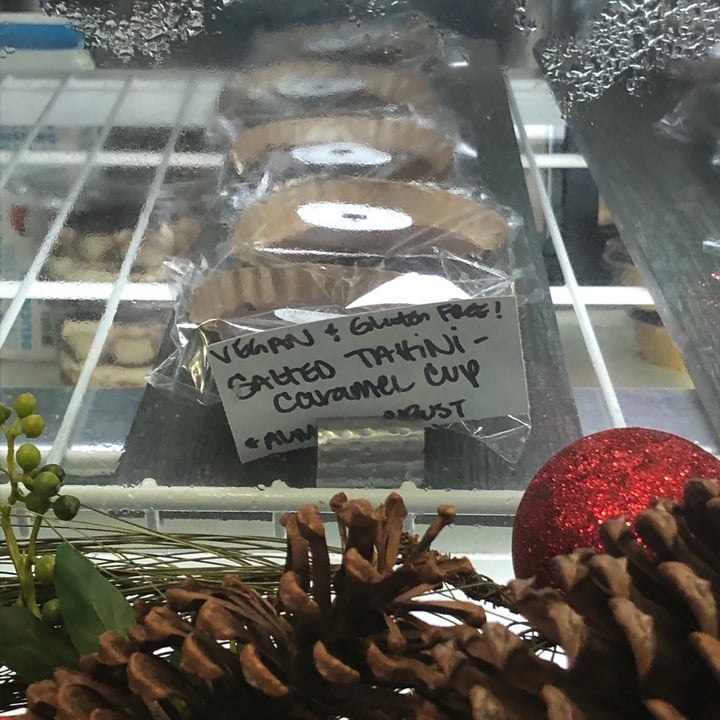 VEGAN & Gluten FREE!
SALTED TAHiNi-
Caramel Cup